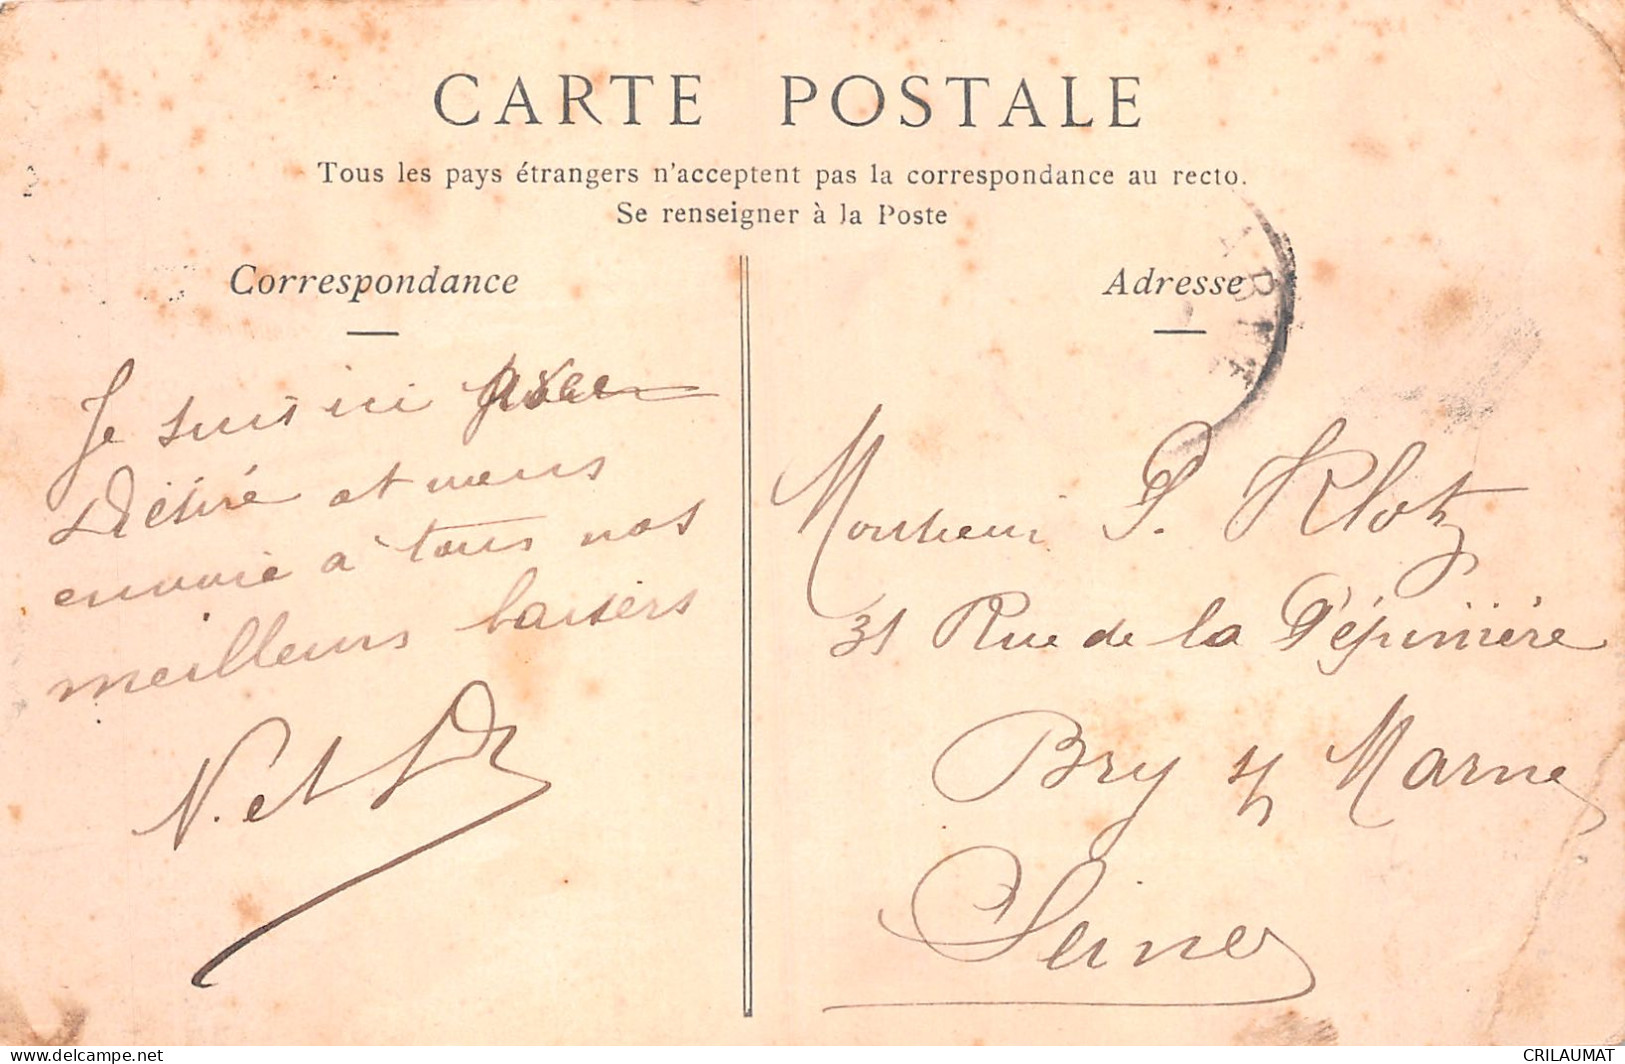 CARTE POSTALE
Tous les pays étrangers n'acceptent pas la correspondance au recto.
Se renseigner à la Poste
Correspondance
Adresse
Je suis ici avec
Désiré et nous
envoie à tous nos
meilleurs baisers
N. et D
Monsieur P. Klotz
31 Rue de la Pépinière
Bry s/ Marne
Seine
www.delcampe.net
CRILAUMAT